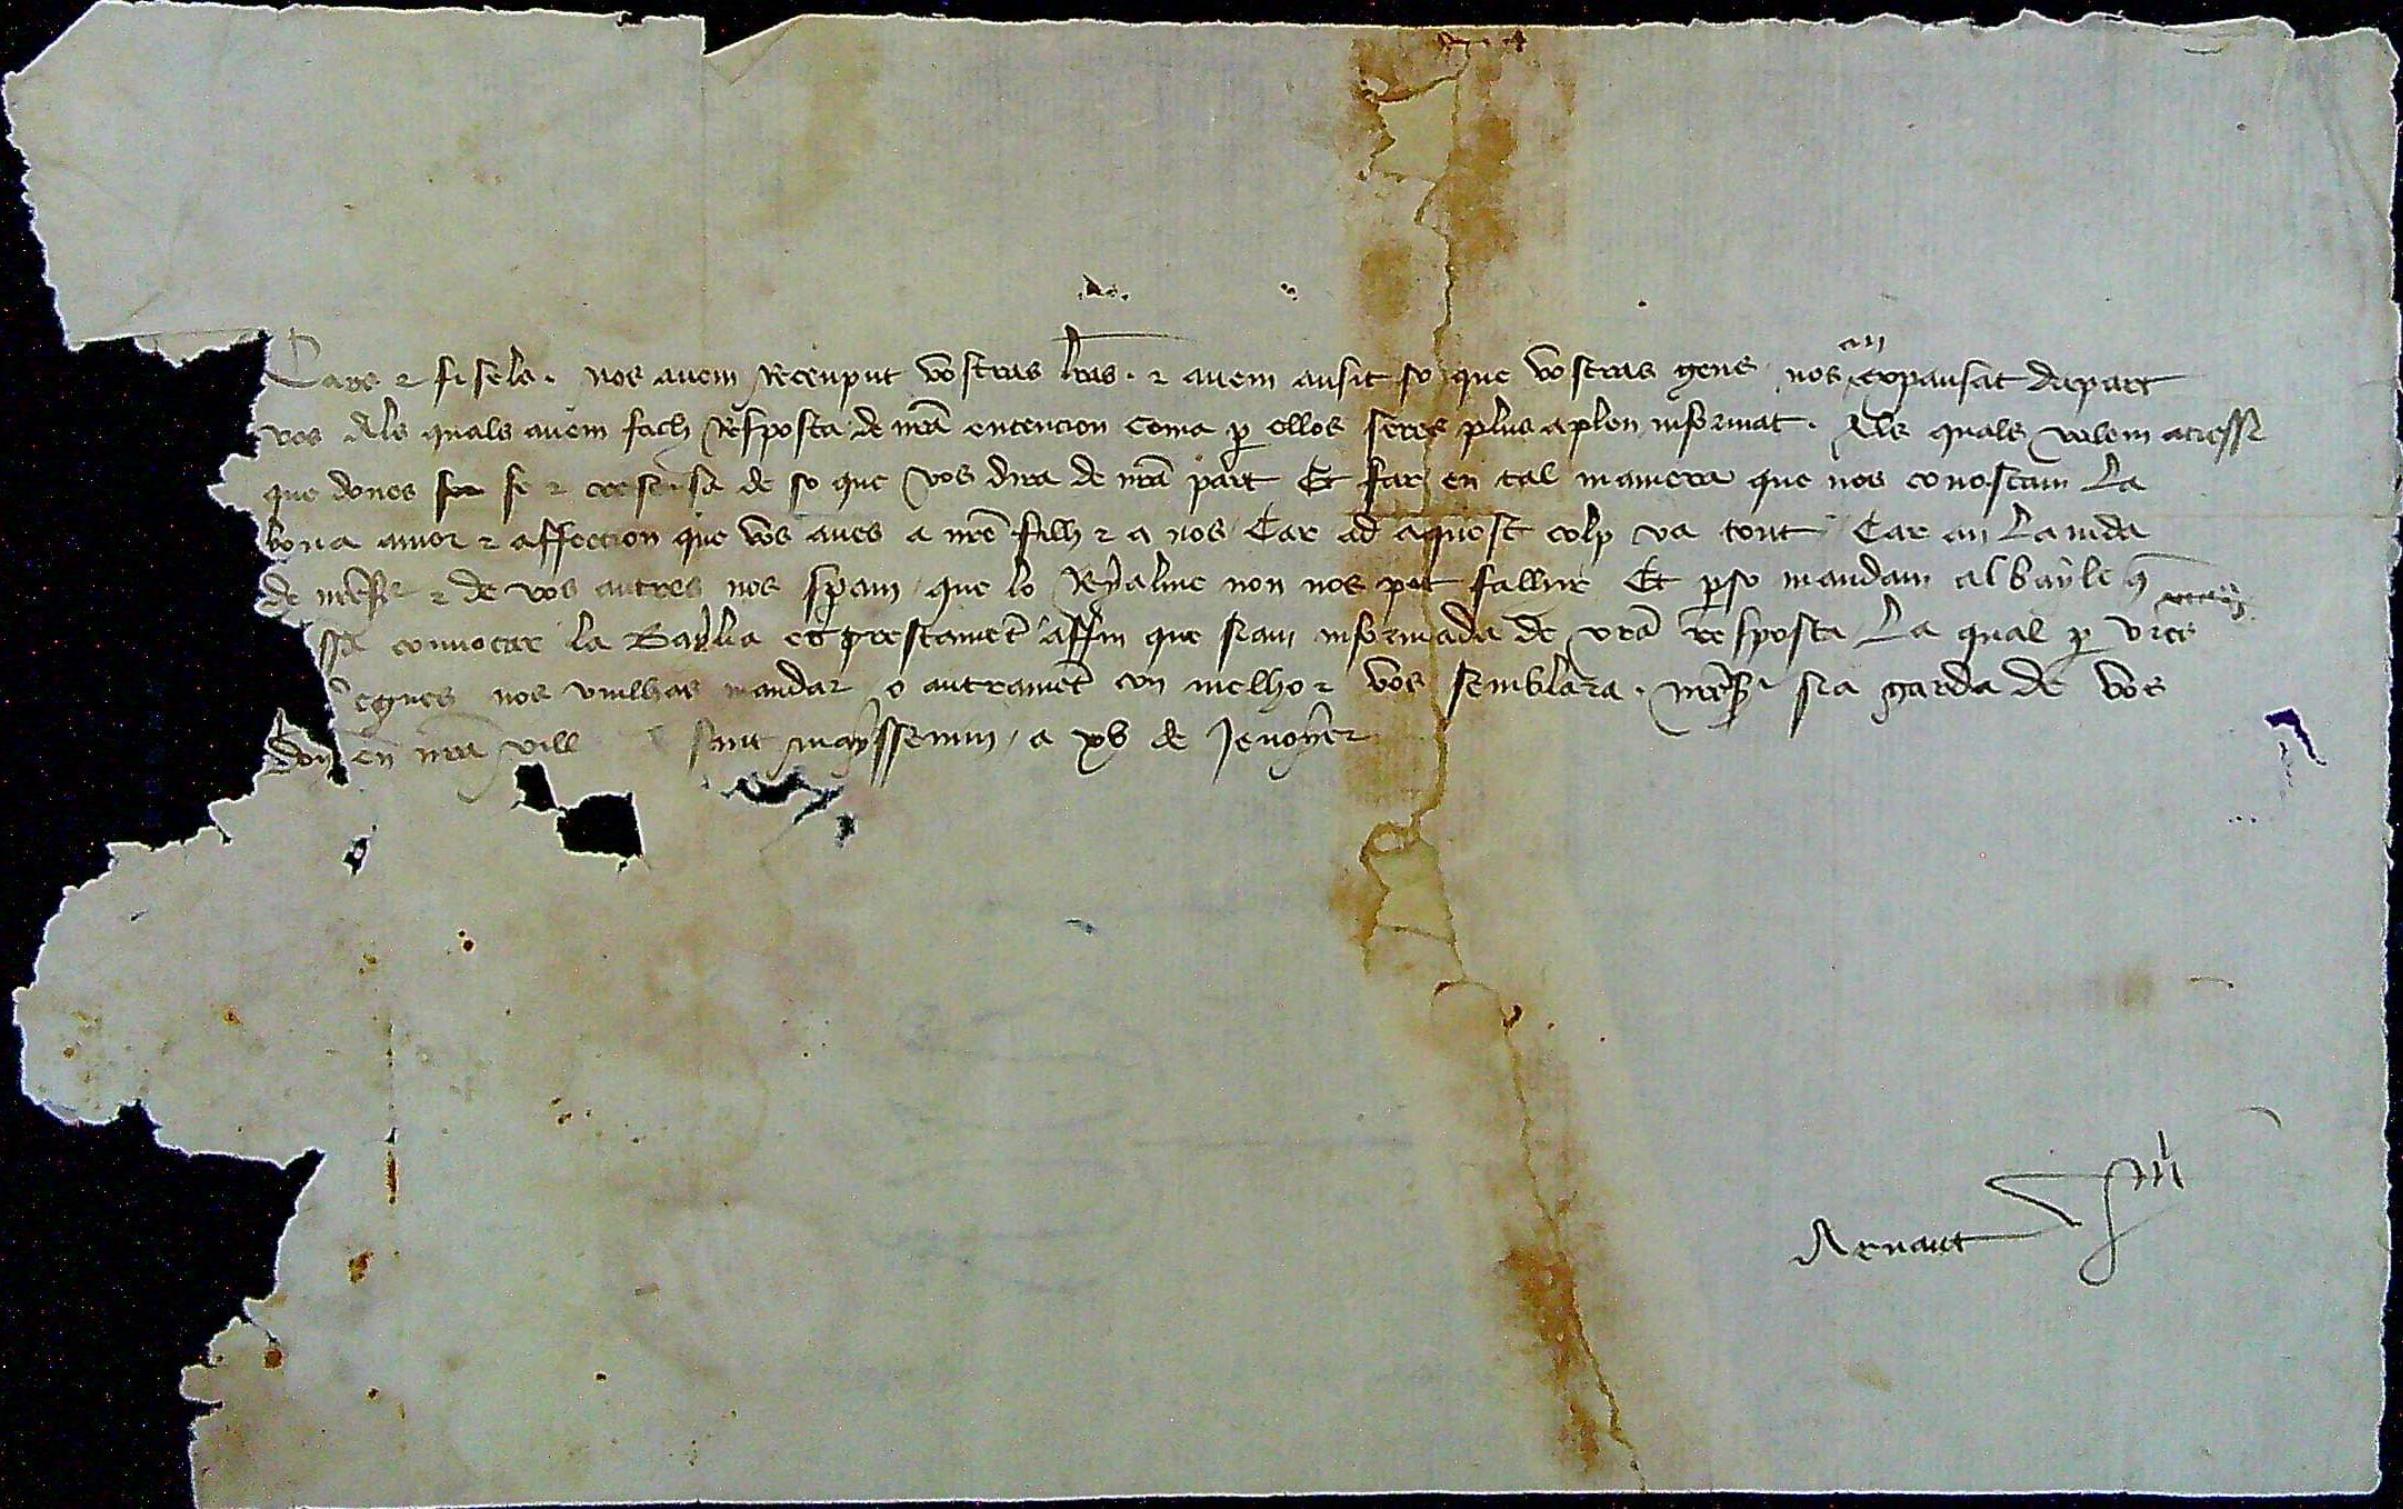 Cars ⁊ fisels. nos avem Receuput vostras lras. ⁊ avem ausit so que vostras gens nos an expausat depart
vos Als quals avem fach Resposta de nrã entencion coma p ellos seres plus aplen informat. Als quals volem
que dones fe ⁊ cresensa de so que vos dira de nrã part Et far en tal maniera que nos conoscam La
bona amor ⁊ affeccion que vos aves a nrẽ filh ⁊ a nos Car ad aquest colp va tout Car an La iuda
de nrẽ sr ⁊ de vos autres nos speram que lo Reyalme non nos pot fallir Et p so mandam al bayle q̃
convocar la Baylia et prestamẽt affin que siam informada de vrã resposta La qual p vrẽs
nos vuilhas mandar o autramẽt con melhor vos semblara. nrẽ sr sia garda de vos
en nrã vill sant mayssemin a xv de Jenoyer
Arnaut